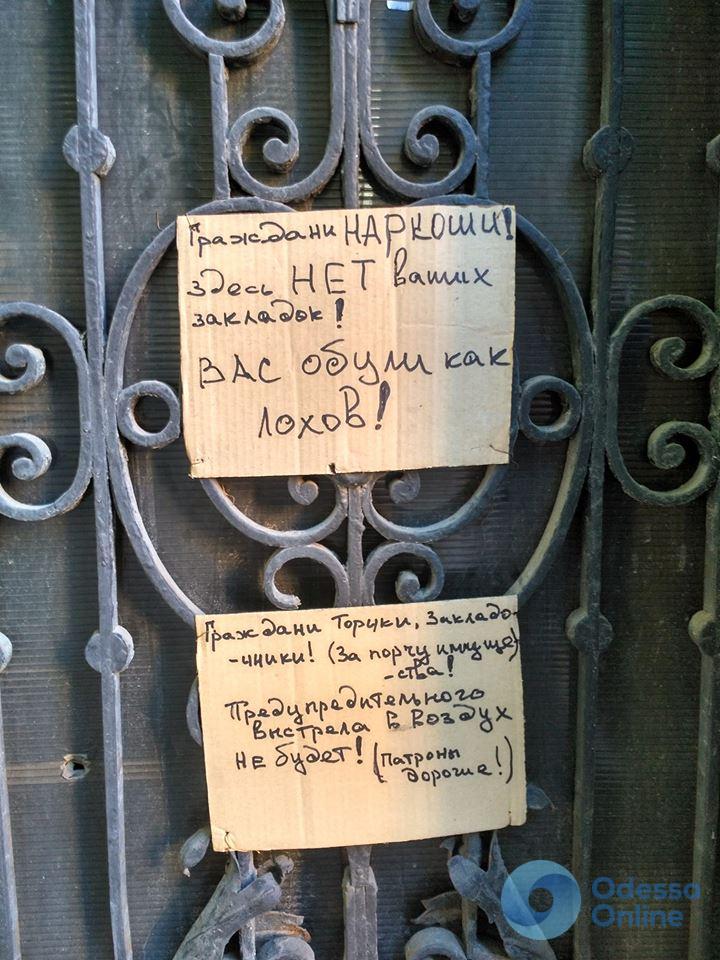 Граждани НАРКОШИ!
здесь НЕТ ваших
закладок!
ВАС обули как
лохов!
Граждани Торчки, Закладо-
-чники! (За порчу имуще)
-ства!
Предупредительного
выстрела в воздух
не будет! (Патроны
дорогие!)
Odessa
Online